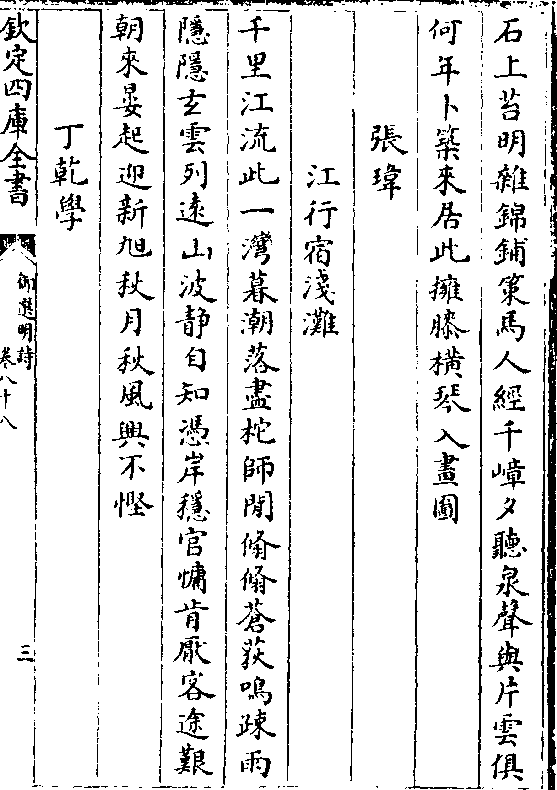 石上苔明雜錦鋪策馬人經千嶂夕聽泉聲與片雲俱
何年卜築來居此擁膝橫琴入畫圖
張瑋
江行宿淺灘
千里江流此一灣暮潮落盡柁師閒翛翛蒼荻鳴疎雨
隱隱玄雲列遠山波靜自知憑岸穩官慵肯厭客途艱
朝來晏起迎新旭秋月秋風興不慳
丁乾學
欽定四庫全書
御選明詩
卷八十八
三